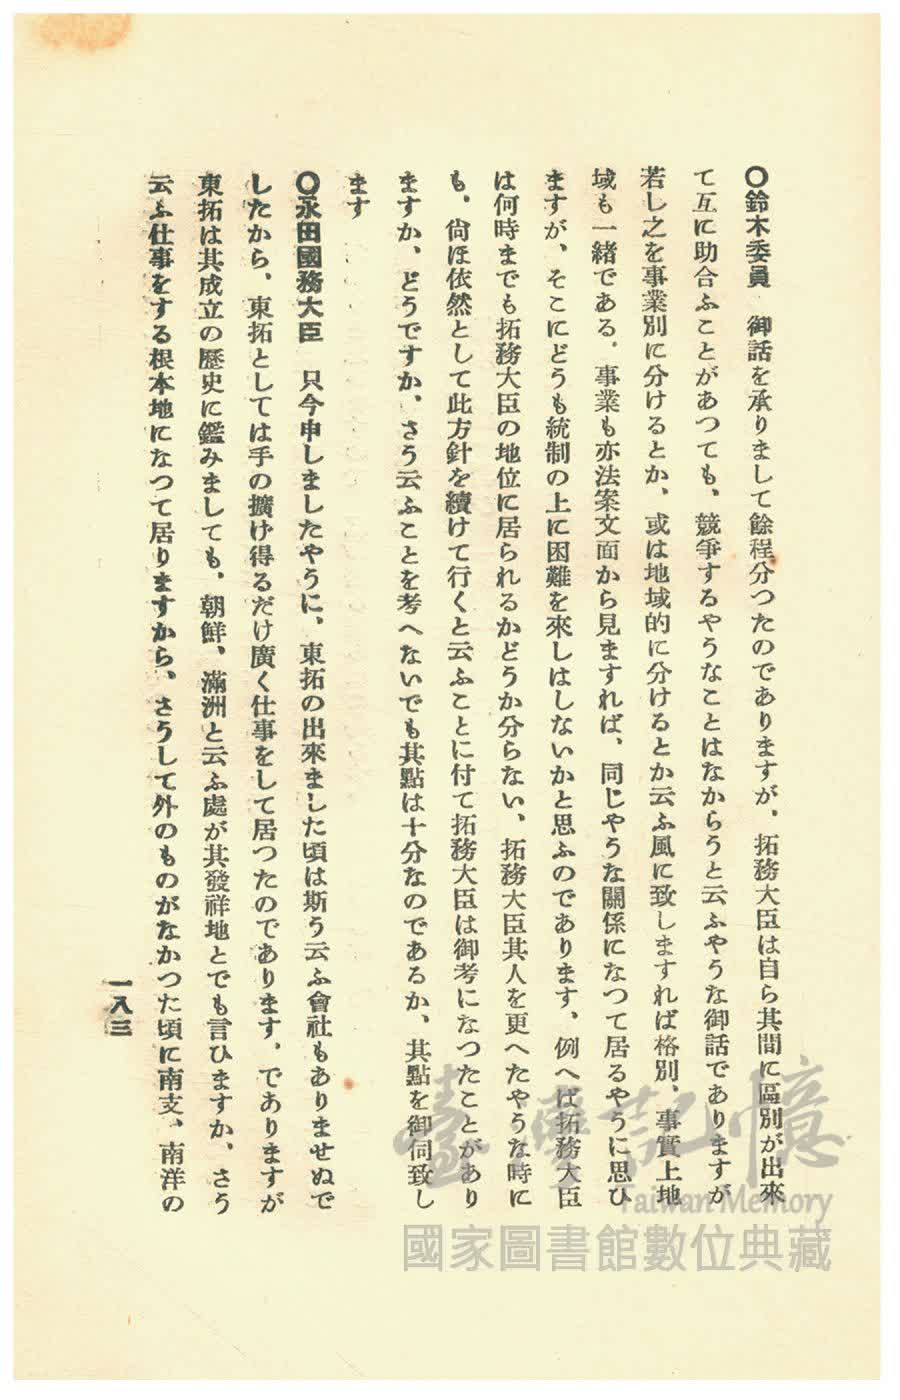 〇鈴木委員　御話を承りまして餘程分つたのでありますが、拓務大臣は自ら其間に區別が出來
て互に助合ふことがあつても、競爭するやうなことはなからうと云ふやうな御話でありますが
若し之を事業別に分けるとか、或は地域的に分けるとか云ふ風に致しますれば格別、事實上地
域も一緒である、事業も亦法案文面から見ますれば、同じやうな關係になつて居るやうに思ひ
ますが、そこにどうも統制の上に困難を來しはしないかと思ふのであります、例へば拓務大臣
は何時までも拓務大臣の地位に居られるかどうか分らない、拓務大臣其人を更へたやうな時に
も、尙ほ依然として此方針を續けて行くと云ふことに付て拓務大臣は御考になつたことがあり
ますか、どうですか、さう云ふことを考へないでも其點は十分なのであるか、其點を御伺致し
ます
〇永田國務大臣　只今申しましたやうに、東拓の出來ました頃は斯う云ふ會社もありませぬで
したから、東拓としては手の擴げ得るだけ廣く仕事をして居つたのであります、でありますが
東拓は其成立の歷史に鑑みましても、朝鮮、滿洲と云ふ處が其發祥地とでも言ひますか、さう
云ふ仕事をする根本地になつて居りますから、さうして外のものがなかつた頃に南支、南洋の
一八三
臺灣記憶
Taiwan Memory
國家圖書館數位典藏